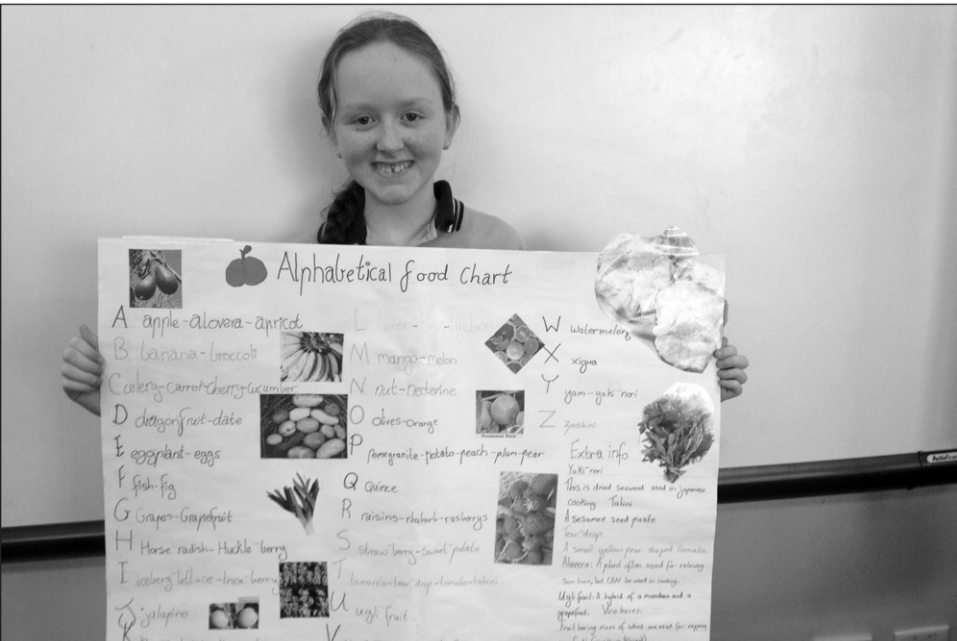 Alphabetical food chart
A apple-alovera-apricot
B banana-broccoli
C celery-carrot-cherry-cucumber
D dragonfruit-date
E eggplant-eggs
F fish-fig
G Grapes-Grapefruit
H Horse radish-Huckle berry
I iceberg lettuce-
J jalapino
K
L
M mango-melon
N nut-necterine
O olives-orange
P pomegranite-potato-peach-plum-pear
Q Quince
R raisins-rhubarb-rasberys
S straw berry-sweet potato
T tear drop-tomato-tahini
U ugli fruit
V
W watermelon
X xigua
Y yam-yaki nori
Z zucchini
Extra info
Yaki nori
This is dried seaweed used in japanese
cooking Tahini
A sesame seed paste
Tear drop:
A small yellow pear shaped tomato
Alovera: A plant often used for relieving
Sun burn, but CAN be used in cooking.
Ugli fruit: A hybrid of a mandarin and a
grapefruit. Vine leaves: